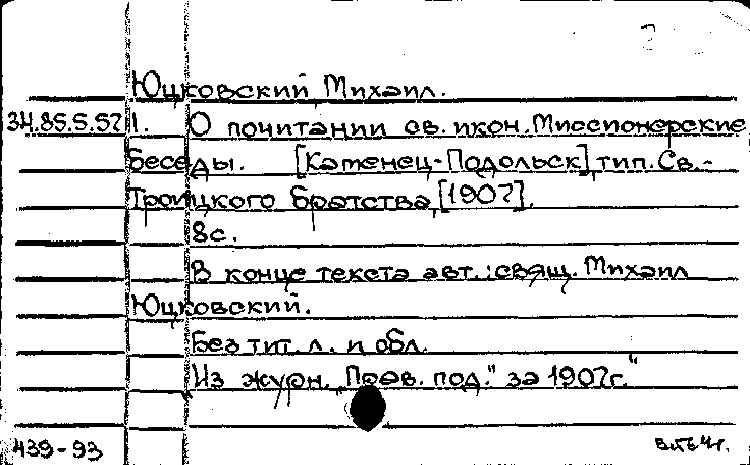 Юцковский Михаил.
34.85.5.52 1. О почитании св. икон. Миссионерские
беседы. [Каменец-Подольск], тип. Св.-
Троицкого братства, [1907].
8с.
В конце текста авт.: свящ. Михаил
Юцковский.
Без тит. л. и обл.
Из журн. „Прав. под." за 1907г."
439-93